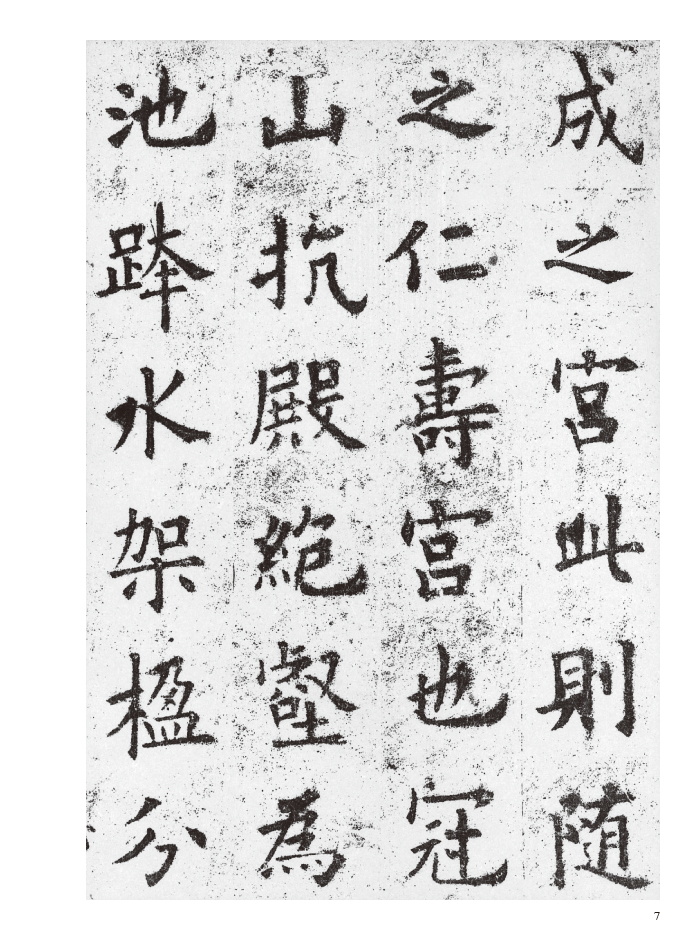 成之宮此則随
之仁壽宮也冠
山抗殿絶壑為
池跨水架楹分
7